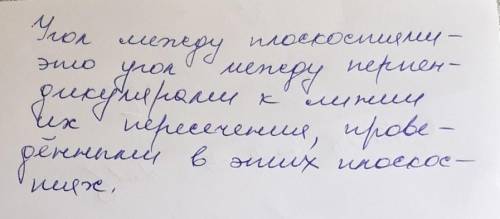 Угол между плоскостями –
это угол между перпен-
дикулярами к линии
их пересечения, прове-
дёнными в этих плоскос-
тях.